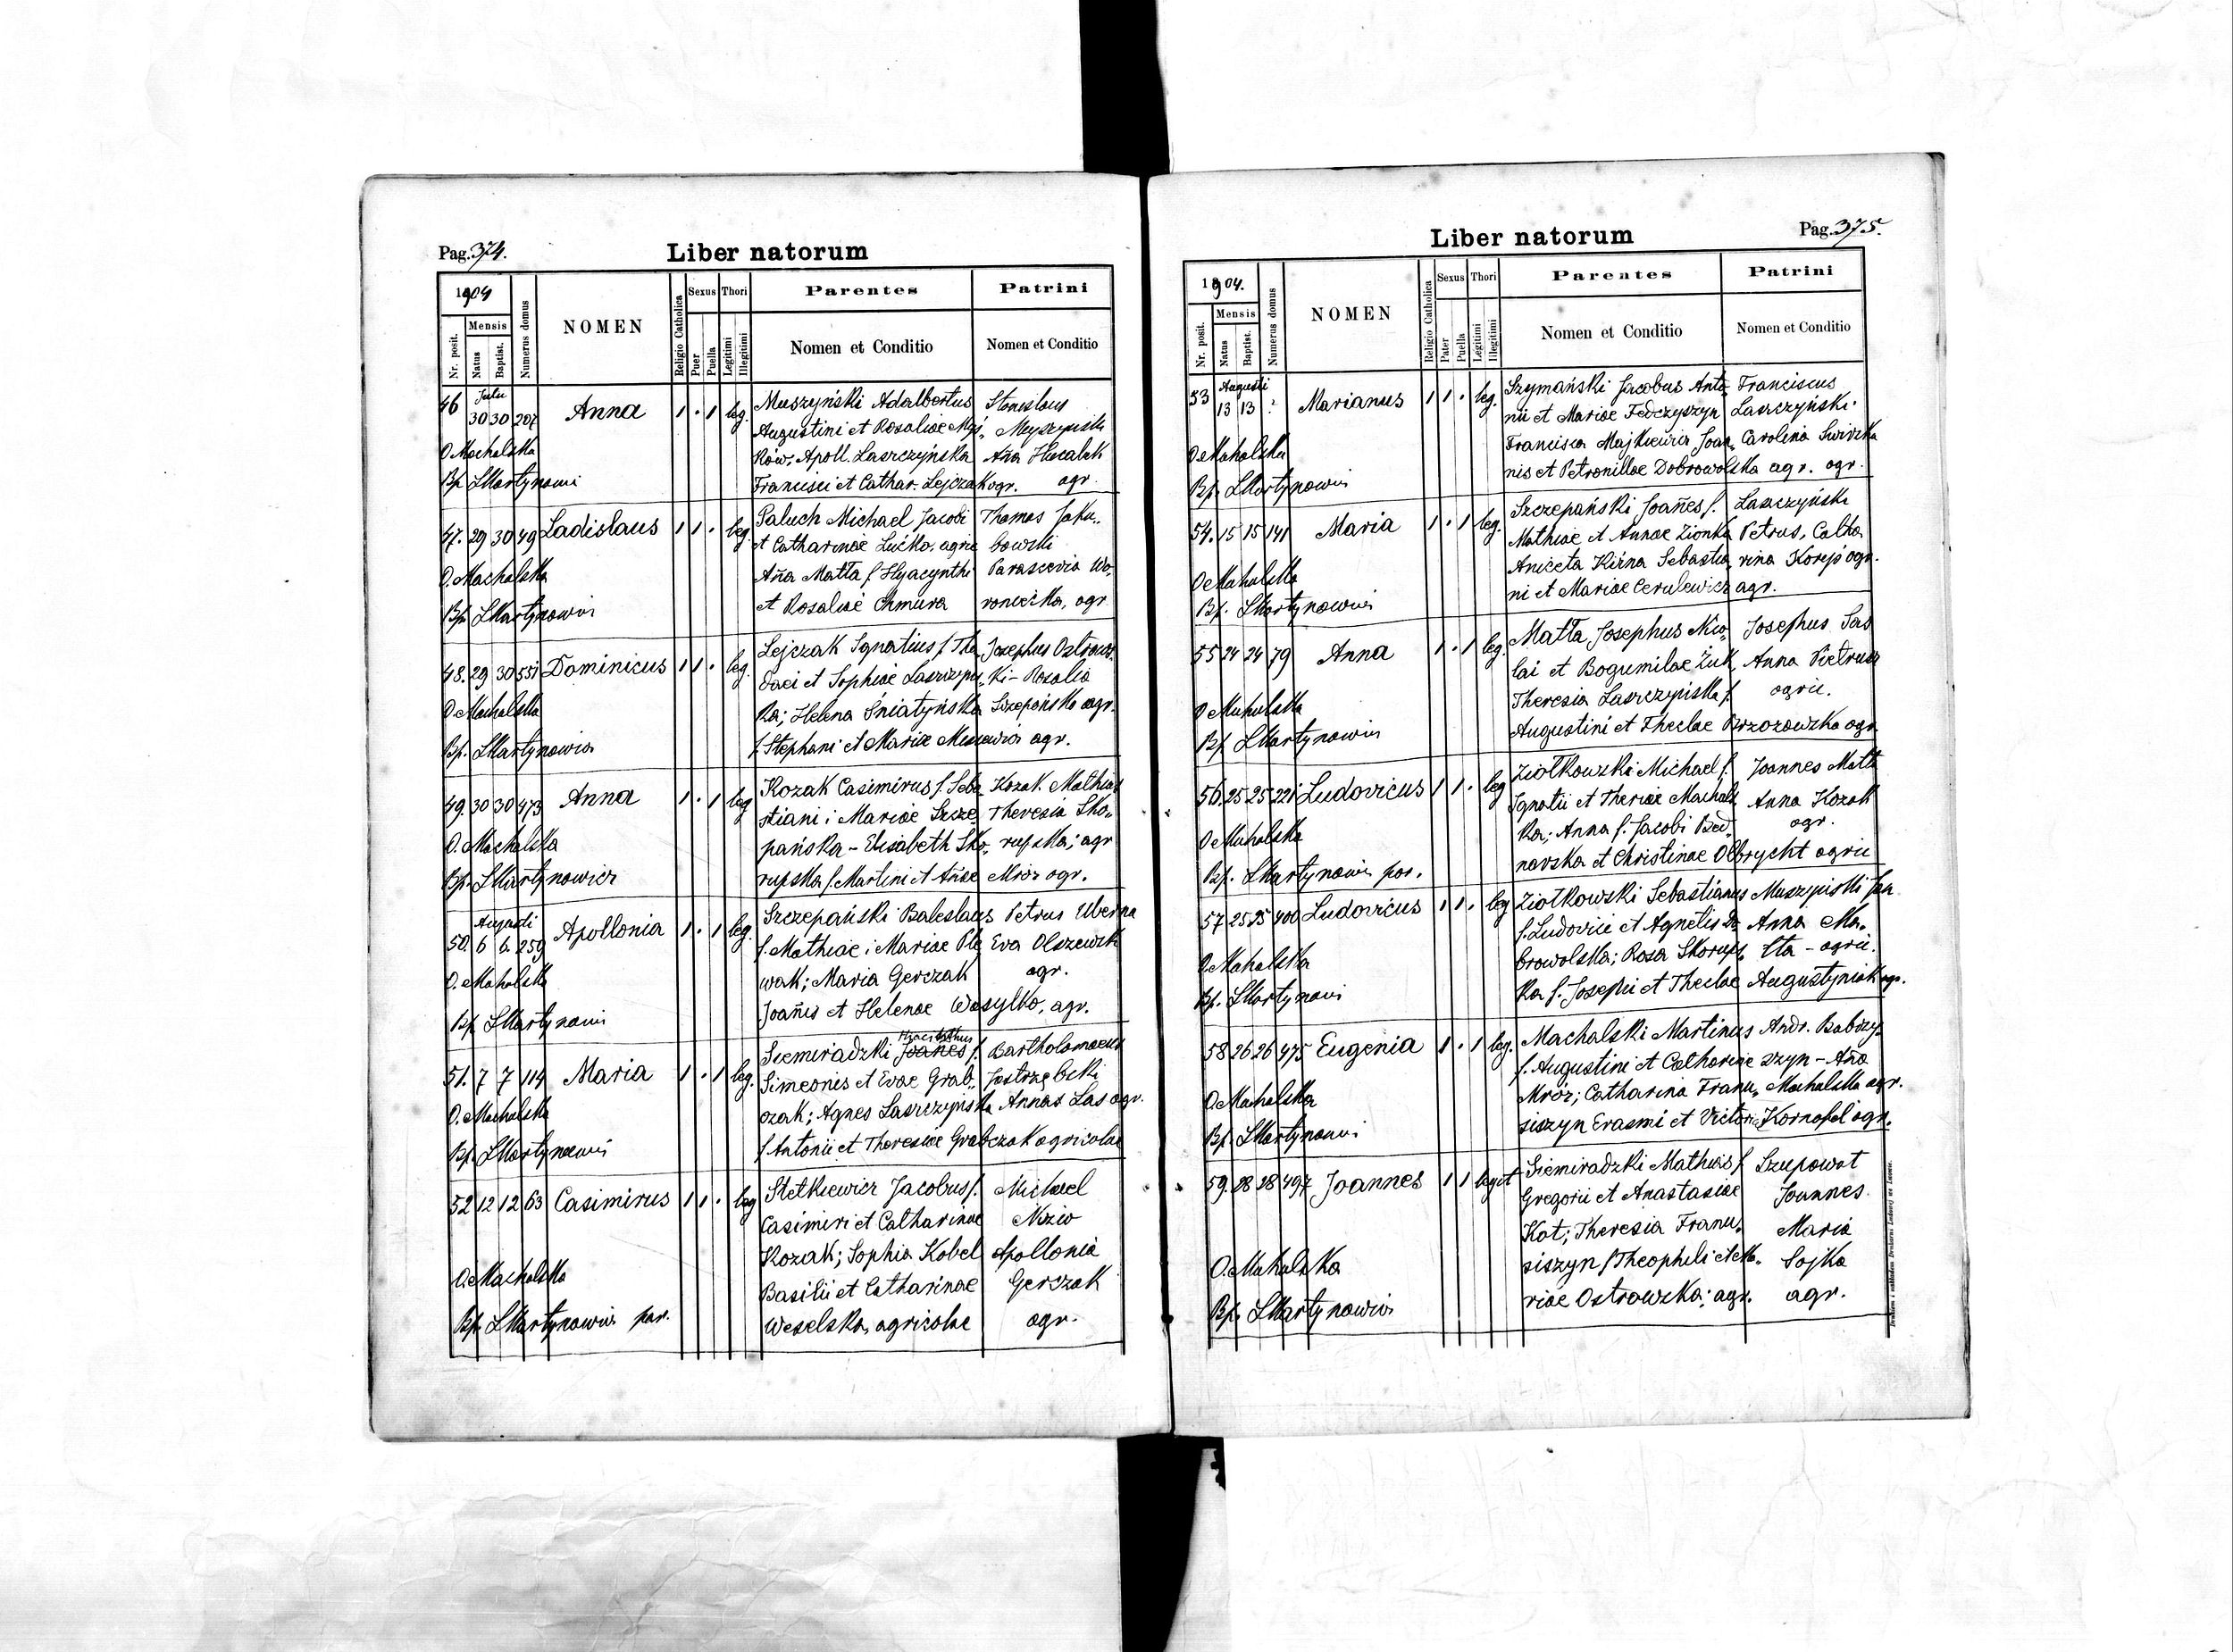 Pag. 374.
Liber natorum
1904
Nr. posit.
Mensis
Natus
Baptist.
Numerus domus
NOMEN
Religio Catholica
Sexus
Puer
Puella
Thori
Legitimi
Illegitimi
Parentes
Nomen et Conditio
Patrini
Nomen et Conditio
46 30 30 207 Anna 1 . 1 leg. Muszyński Adalbertus Stanislaus
Augustini et Rosaliae
O. Machalska
Apoll. Laszczyńska
Bp.
Francisci et Cathar. Lejczak agr. agr.
47. 29 30 49 Ladislaus 1 1 . leg. Paluch Michael Jacobi Thomas Jaku„
et Catharinae agric bowski
O. Machalska
Matła f. Hyacynthi Parascevia Wo„
Bp. LMartynowicz
et Rosaliae Chmura agr.
48. 29 30 Dominicus 1 1 . leg. Lejczak Ignatius f. Tha Josephus Ostrows„
daei et Sophiae Ki - Rosalia
O. Machalska
Ka; Helena Śniatyńska Szczepańska agr.
Bp. LMartynowicz
f. Stephani et Mariae agr.
49. 30 30 473 Anna 1 . 1 leg Kozak Casimirus f. Seba Kozak Mathias
stiani i Mariae Szcze„ Theresia Sko„
O. Machalska
pańska - Elisabeth Sko„ rupska; agr
Bp. LMartynowicz
rupska f. Martini et Mróz agr.
Augusti
50. 6 6 259 Apollonia 1 . 1 leg. Szczepański Boleslaus Petrus
f. Mathiae i Mariae Ple Eva Olszewsk
O. Machalska
wak; Maria Gerczak agr.
Bp.
Joañis et Helenae Wasylko, agr.
Hyacinthus
51. 7 7 114 Maria 1 . 1 leg. Siemiradzki Joañes f. Bartholomaeus
Simeonis et Evae Grab„ Jastrzębski
O. Machalska
czak; Agnes Laszczyńska Sas agr.
Bp.
f. Antonii et Theresiae Grabczak agricolae
52 12 12 63 Casimirus 1 1 . leg Stetkiewicz Jacobus f. Michael
Casimiri et Catharinae Nizio
Kozak; Sophia Kobel Apollonia
O. Machalska
Basilii et Catharinae Gerczak
Bp. LMartynowicz par.
Weselska, agricolae agr.
Pag. 375.
Liber natorum
1904.
Nr. posit.
Mensis
Natus
Baptist.
Numerus domus
NOMEN
Religio Catholica
Sexus
Pater
Puella
Thori
Legitimi
Illegitimi
Parentes
Nomen et Conditio
Patrini
Nomen et Conditio
Augusti
53 13 13 ? Marianus 1 1 . leg. Szymański Jacobus Anto„ Franciscus
nii et Mariae Fedczyszyn Laszczyński.
Francisca Majkiewicz Joan„ Carolina
O. Machalska
nis et Petronillae Dobrowolska agr. agr.
Bp. LMartynowicz
54. 15 15 141 Maria 1 . 1 leg. Szczepański Joañes f. Laszczyński
Mathiae et Annae Zionka Petrus, Catha
O. Machalska
Aniceta Sebastia„ rina agr.
Bp. LMartynowicz
ni et Mariae Cerulewicz agr.
55 24 24 79 Anna 1 . 1 leg. Matła Josephus Nico„ Josephus Sas
lai et Bogumilae Żuk, Anna
O. Machalska
Theresia Laszczyńska f. agric.
Bp. LMartynowicz
Augustini et Theclae Brzozowska agr.
56. 25 25 221 Ludovicus 1 1 . leg Ziołkowski Michael f. Joannes Matł
Ignatii et Machals Anna Kozak
O. Machalska
Ka; Anna f. Jacobi Bed„ agr.
Bp. LMartynowicz par.
narska et Christinae Olbrycht agric
57 25 25 400 Ludovicus 1 1 . leg Ziołkowski Sebastianus
f. Ludovici et Agnetis Do Anna Ma„
O. Machalska
browolska; Rosa Skorups„ tła - agric.
Bp.
Ka f. Josephi et Theclae Augustyniak agr.
58 26 26 475 Eugenia 1 . 1 leg. Machalski Martinus Andr.
f. Augustini et Catharinae szyn - Aña
O. Machalska
Mróz; Catharina Franu„ Machalska agr.
Bp.
siszyn Erasmi et Kornafel agr.
59. 28 28 497 Joannes 1 1 legit Siemiradzki Mathias f. Szupowat
Gregorii et Anastasiae Joannes
Kot; Theresia Franu„ Maria
O. Machalska
siszyn f. Theophili et Ma„ Sojka
Bp. LMartynowicz
riae Ostrowska; agr. agr.